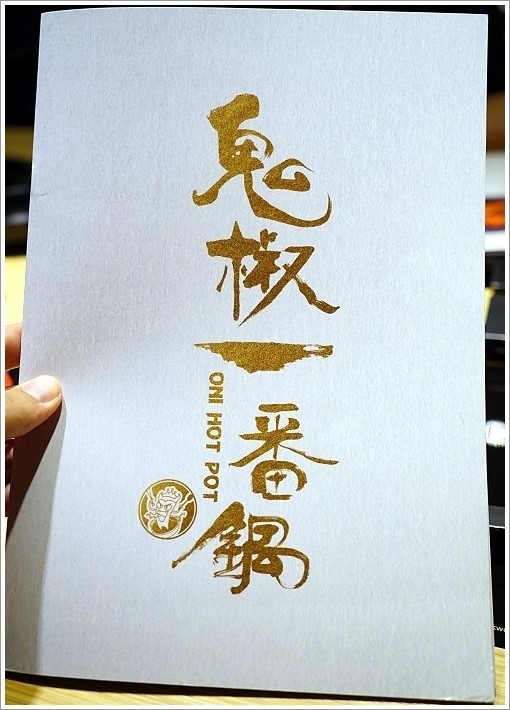 鬼椒一番鍋
ONI HOT POT